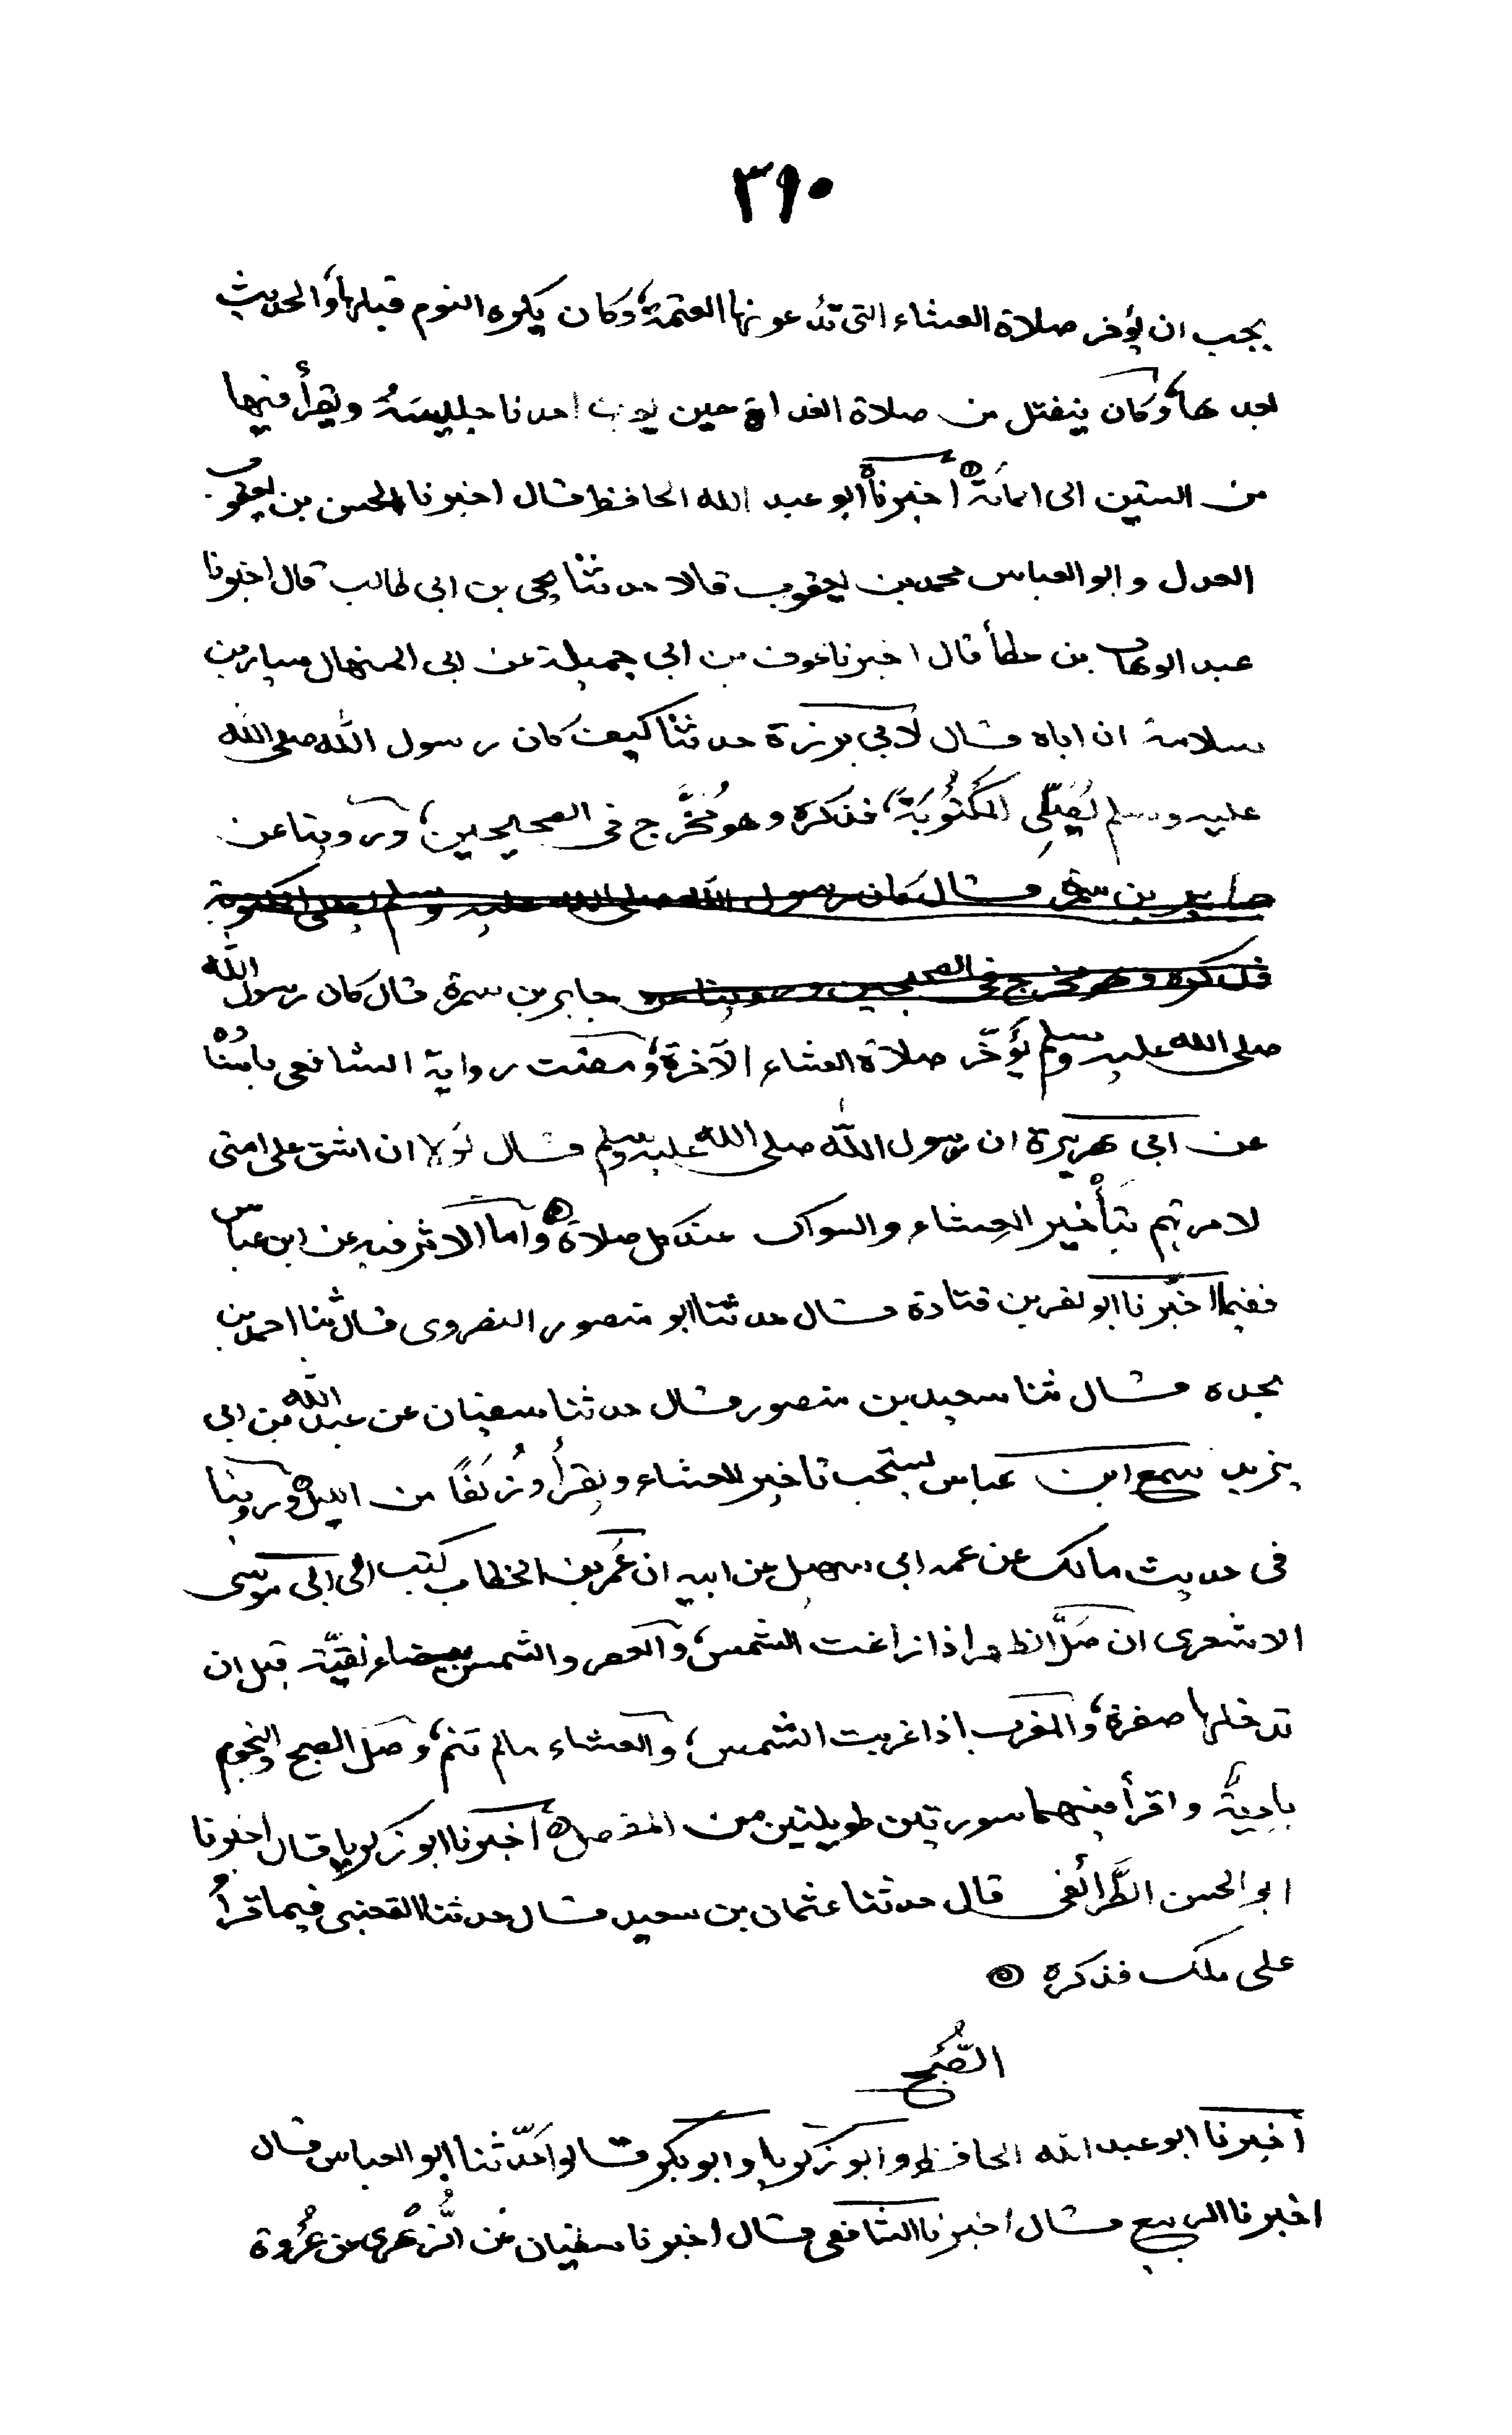 ٣٩٠
يحب ان يؤخر صلاة العشاء التي تدعونها العتمة، وكان يكره النوم قبلها، والحديث
بعدها، وكان ينفتل من صلاة الغداة حين يعرف احدنا جليسهُ ويقرأ فيها
من الستين الى المائة ۞ أخبرناهْ ابو عبد الله الحافظ قال اخبرنا الحسن بن يعقوب
العدل وابو العباس محمد بن يعقوب قالا حدثنا يحيى بن ابي طالب قال اخبرنا
عبد الوهاب بن عطأ قال اخبرنا عوف بن ابي جميلة عن ابي المنهال سيار بن
سلامة ان اباه قال لأبي برزة حدثنا كيف كان رسول الله صلى الله
عليه وسلم يُصَلّي المَكْتُوبَة، فذكره وهو مُخَرَّج في الصحيحين، وروينا عن
جابر بن سمرة قال كان رسول الله صلى الله عليه وسلم يصلى المكتوبة
فذكره وهو مخرج في الصحيحين وروينا عن جابر بن سمرة قال كان رسول الله
صلى الله عليه وسلم يؤخّر صلاة العشاء الآخرة، ومضت رواية الشافعي باسْنَاده
عن ابي هريرة ان رسول الله صلى الله عليه وسلم قال لَولا ان اشق على امتي
لامرتهم بتأخير العِشاء والسواك عند كل صلاة ۞ وأما الاثر فيه عن ابن عباس
ففيما اخبرنا ابو نصر بن قتادة قال حدثنا ابو منصور النضروى قال ثنا احمد بن
نجده قال ثنا سعيد بن منصور قال حدثنا سفيان عن عبيد الله بن ابي
يزيد سمع ابن عباس يستحب تاخير العشاء ويقرأُ وزُلَفًا من الليل ۞ وروينا
في حديث مالك عن عمه ابي سهيل عن ابيه ان عُمر بن الخطاب كتب الى ابي موسى
الاشعرى ان صَلّ الظهر اذا زاغت الشمس، والعصر والشمس بيضاء نقيّة قبل ان
تدخلها صفرة، والمغرب اذا غربت الشمس، والعشاء مالم تنم، وصَل الصبح والنجوم
بادِيَةٌ واقرأ فيهما سورتين طويلتين من المفصل ۞ أخبرنا ابو زكريا قال اخبرنا
ابو الحسن الطَّرائفى قال حدثنا عثمان بن سعيد قال حدثنا القعنبى فيما قرأُ
على ملك فذكره ۞
الصُّبْح
أخبرنا ابو عبد الله الحافظ وابو زكريا وابو بكر قالوا حَدّثنا ابو العباس قال
اخبرنا الربيع قال اخبرنا الشافعى قال اخبرنا سفيان عَن الزُّهْرى عن عُرْوة